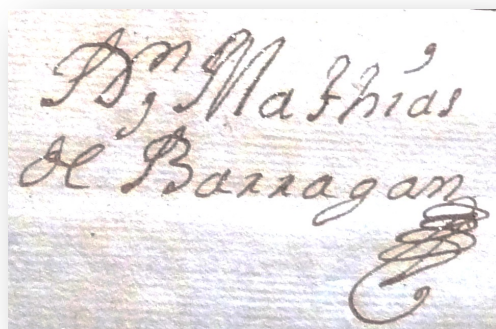 Dn, Mathias
de Barragan